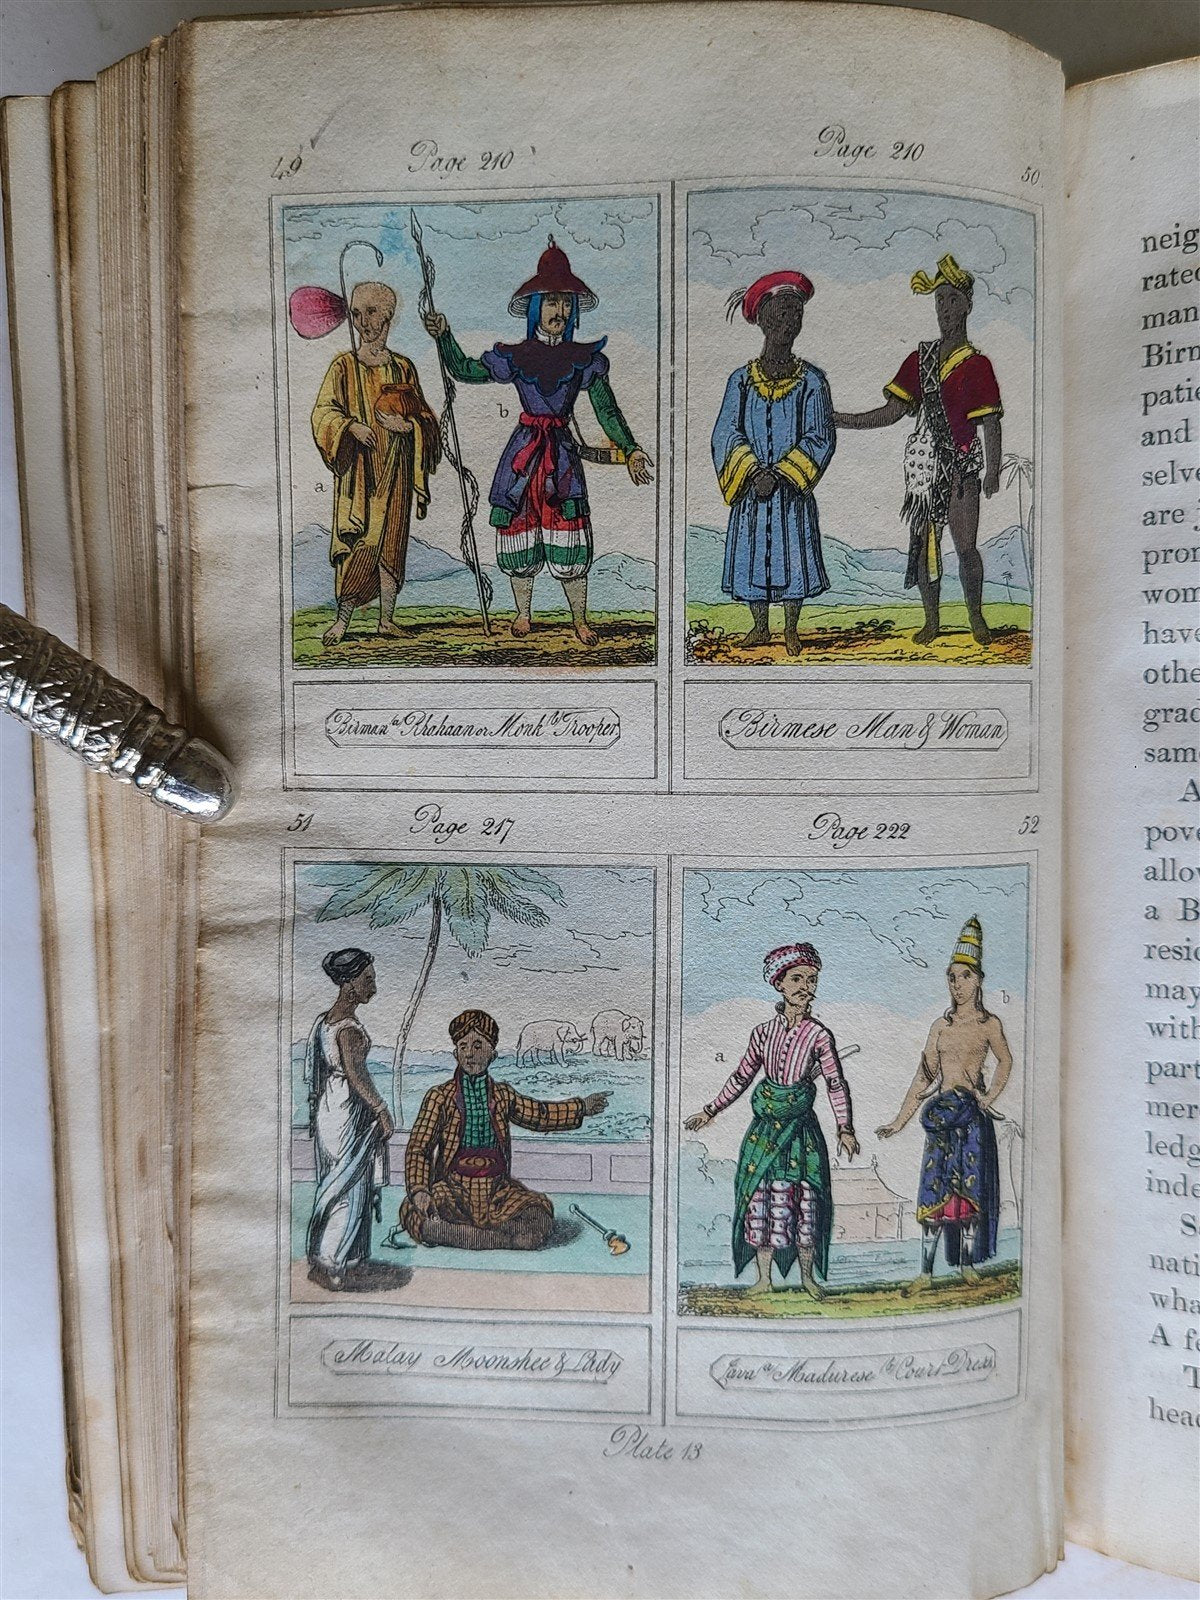 49
Page 210
Page 210
50
a
b
Birman a Rhahaan or Monk b Trooper
Birmese Man & Woman
51
Page 217
Page 222
52
a
b
Malay Moonshee & Lady
Java a Madurese b Court Dress
Plate 13
neig
rated
man
Birm
patie
and
selve
are
pron
wom
have
othe
grad
same
A
pove
allow
a B
resid
may
with
part
mer
ledg
inde
S
nati
wha
A fe
T
head